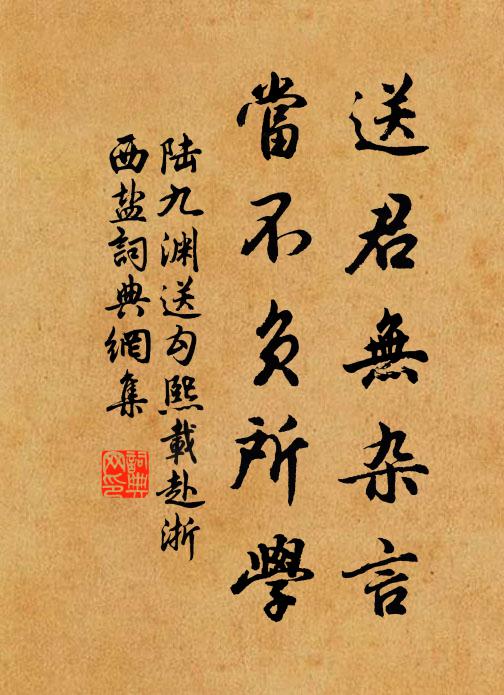 送君無杂言
當不负所學
陆九渊送勾熙載赴浙
西盐詞典網集
詞典
网印